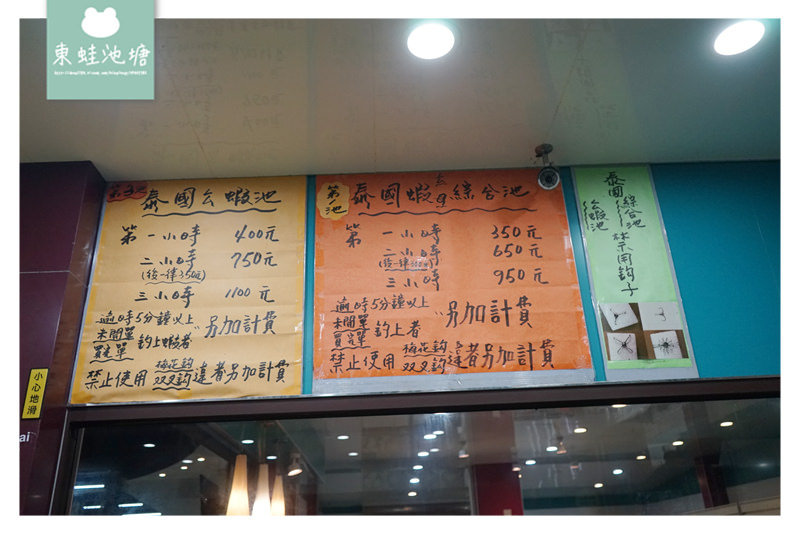 東蛙池塘
第3池
泰國公蝦池
第一小時 400元
二小時 750元
(後一律350元)
三小時 1100元
逾時5分鐘以上
未開單
買完單
釣上蝦者
另加計費
禁止使用
梅花鈎
双叉鈎
違者另加計費
第1池
泰國蝦
綜合池
第一小時 350元
二小時 650元
三小時 950元
逾時5分鐘以上
未開單
買完單
釣上者
另加計費
禁止使用
梅花鈎
双叉鈎
違者另加計費
泰國
綜合池
公蝦池
禁用鈎子
小心地滑
ai